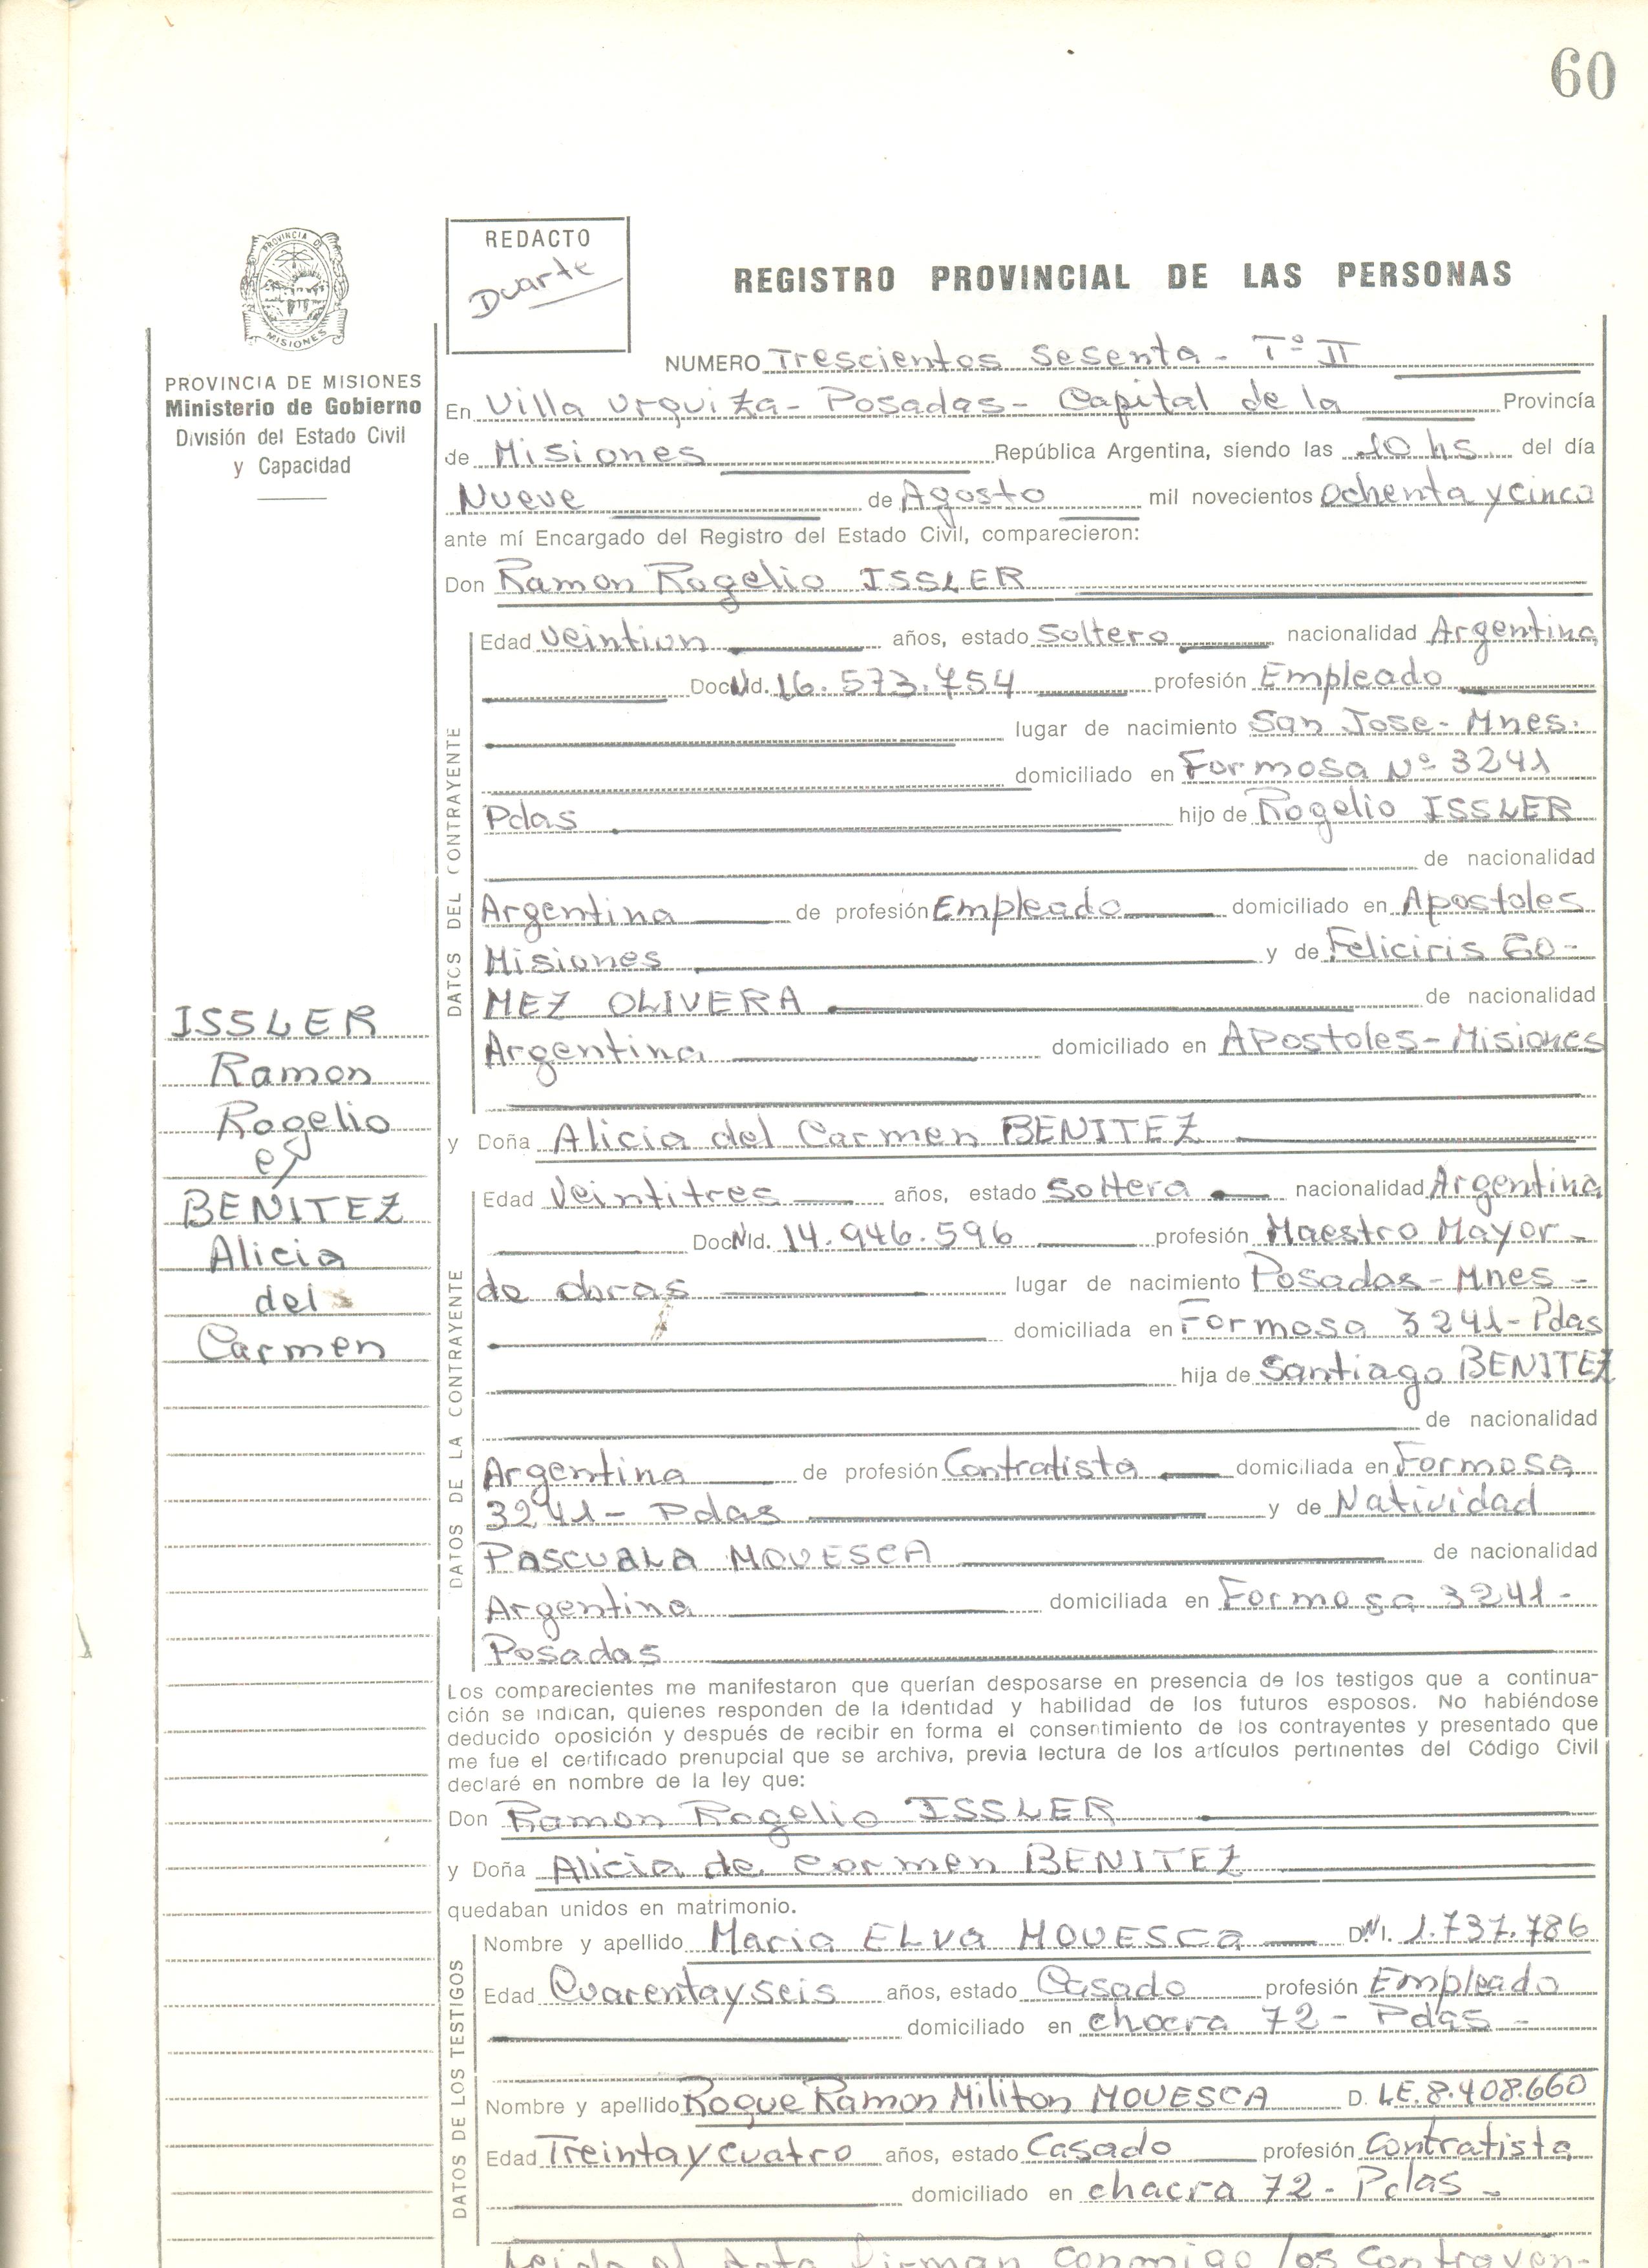 60
PROVINCIA DE
MISIONES
REDACTO
Duarte
REGISTRO PROVINCIAL DE LAS PERSONAS
PROVINCIA DE MISIONES
Ministerio de Gobierno
División del Estado Civil
y Capacidad
NUMERO Trescientos Sesenta - Tº II
En Villa Urquiza - Posadas - Capital de la Provincia
de Misiones República Argentina, siendo las 10 hs del día
Nueve de Agosto mil novecientos ochenta y cinco
ante mí Encargado del Registro del Estado Civil, comparecieron:
Don Ramon Rogelio ISSLER
DATOS DEL CONTRAYENTE
Edad veintiun años, estado Soltero nacionalidad Argentina
Doc NId. 16.573.754 profesión Empleado
lugar de nacimiento San Jose - Mnes.
domiciliado en Formosa Nº 3241
Pdas hijo de Rogelio ISSLER
de nacionalidad
Argentina de profesión Empleado domiciliado en Apostoles
Misiones y de Feliciris GO-
MEZ OLIVERA de nacionalidad
Argentina domiciliado en APostoles - Misiones
ISSLER
Ramon
Rogelio
y
BENITEZ
Alicia
del
Carmen
y Doña Alicia del Carmen BENITEZ
DATOS DE LA CONTRAYENTE
Edad Veintitres años, estado Soltera nacionalidad Argentina
Doc NId. 14.946.596 profesión Maestro Mayor -
de obras lugar de nacimiento Posadas - Mnes -
domiciliada en Formosa 3241 - Pdas
hija de Santiago BENITEZ
de nacionalidad
Argentina de profesión Contratista domiciliada en Formosa
3241 - Pdas y de Natividad
PASCUALA MOVESCA de nacionalidad
Argentina domiciliada en Formosa 3241 -
Posadas
Los comparecientes me manifestaron que querían desposarse en presencia de los testigos que a continua-
ción se indican, quienes responden de la identidad y habilidad de los futuros esposos. No habiéndose
deducido oposición y después de recibir en forma el consentimiento de los contrayentes y presentado que
me fue el certificado prenupcial que se archiva, previa lectura de los artículos pertinentes del Código Civil
declaré en nombre de la ley que:
Don Ramon Rogelio ISSLER
y Doña Alicia de Carmen BENITEZ
quedaban unidos en matrimonio.
DATOS DE LOS TESTIGOS
Nombre y apellido Maria ELVA MOVESCA DNI. 1.737.786
Edad Cuarenta y seis años, estado Casado profesión Empleado
domiciliado en chacra 72 - Pdas -
Nombre y apellido Roque Ramon Militon MOVESCA D. LE. 8.408.660
Edad Treinta y cuatro años, estado Casado profesión Contratista
domiciliado en chacra 72 - Pdas -
Leida el Acta firman conmigo los contrayen-